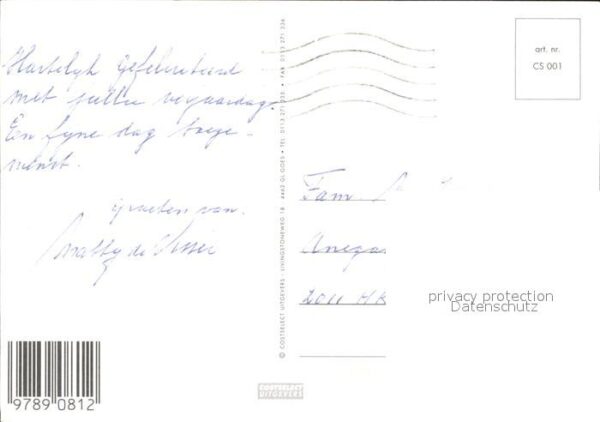 Hartelijk gefeliciteerd
met jullie verjaardag.
Een fijne dag toege-
wenst.
Groeten van.
de Visser
© COSTSELECT UITGEVERS - LIVINGSTONEWEG 18 4462 GL GOES • TEL. 0113 271 • FAX 0113 271 236
art. nr.
CS 001
Fam.
Anega
2011 HK
privacy protection
Datenschutz
COSTSELECT
UITGEVERS
9789 0812